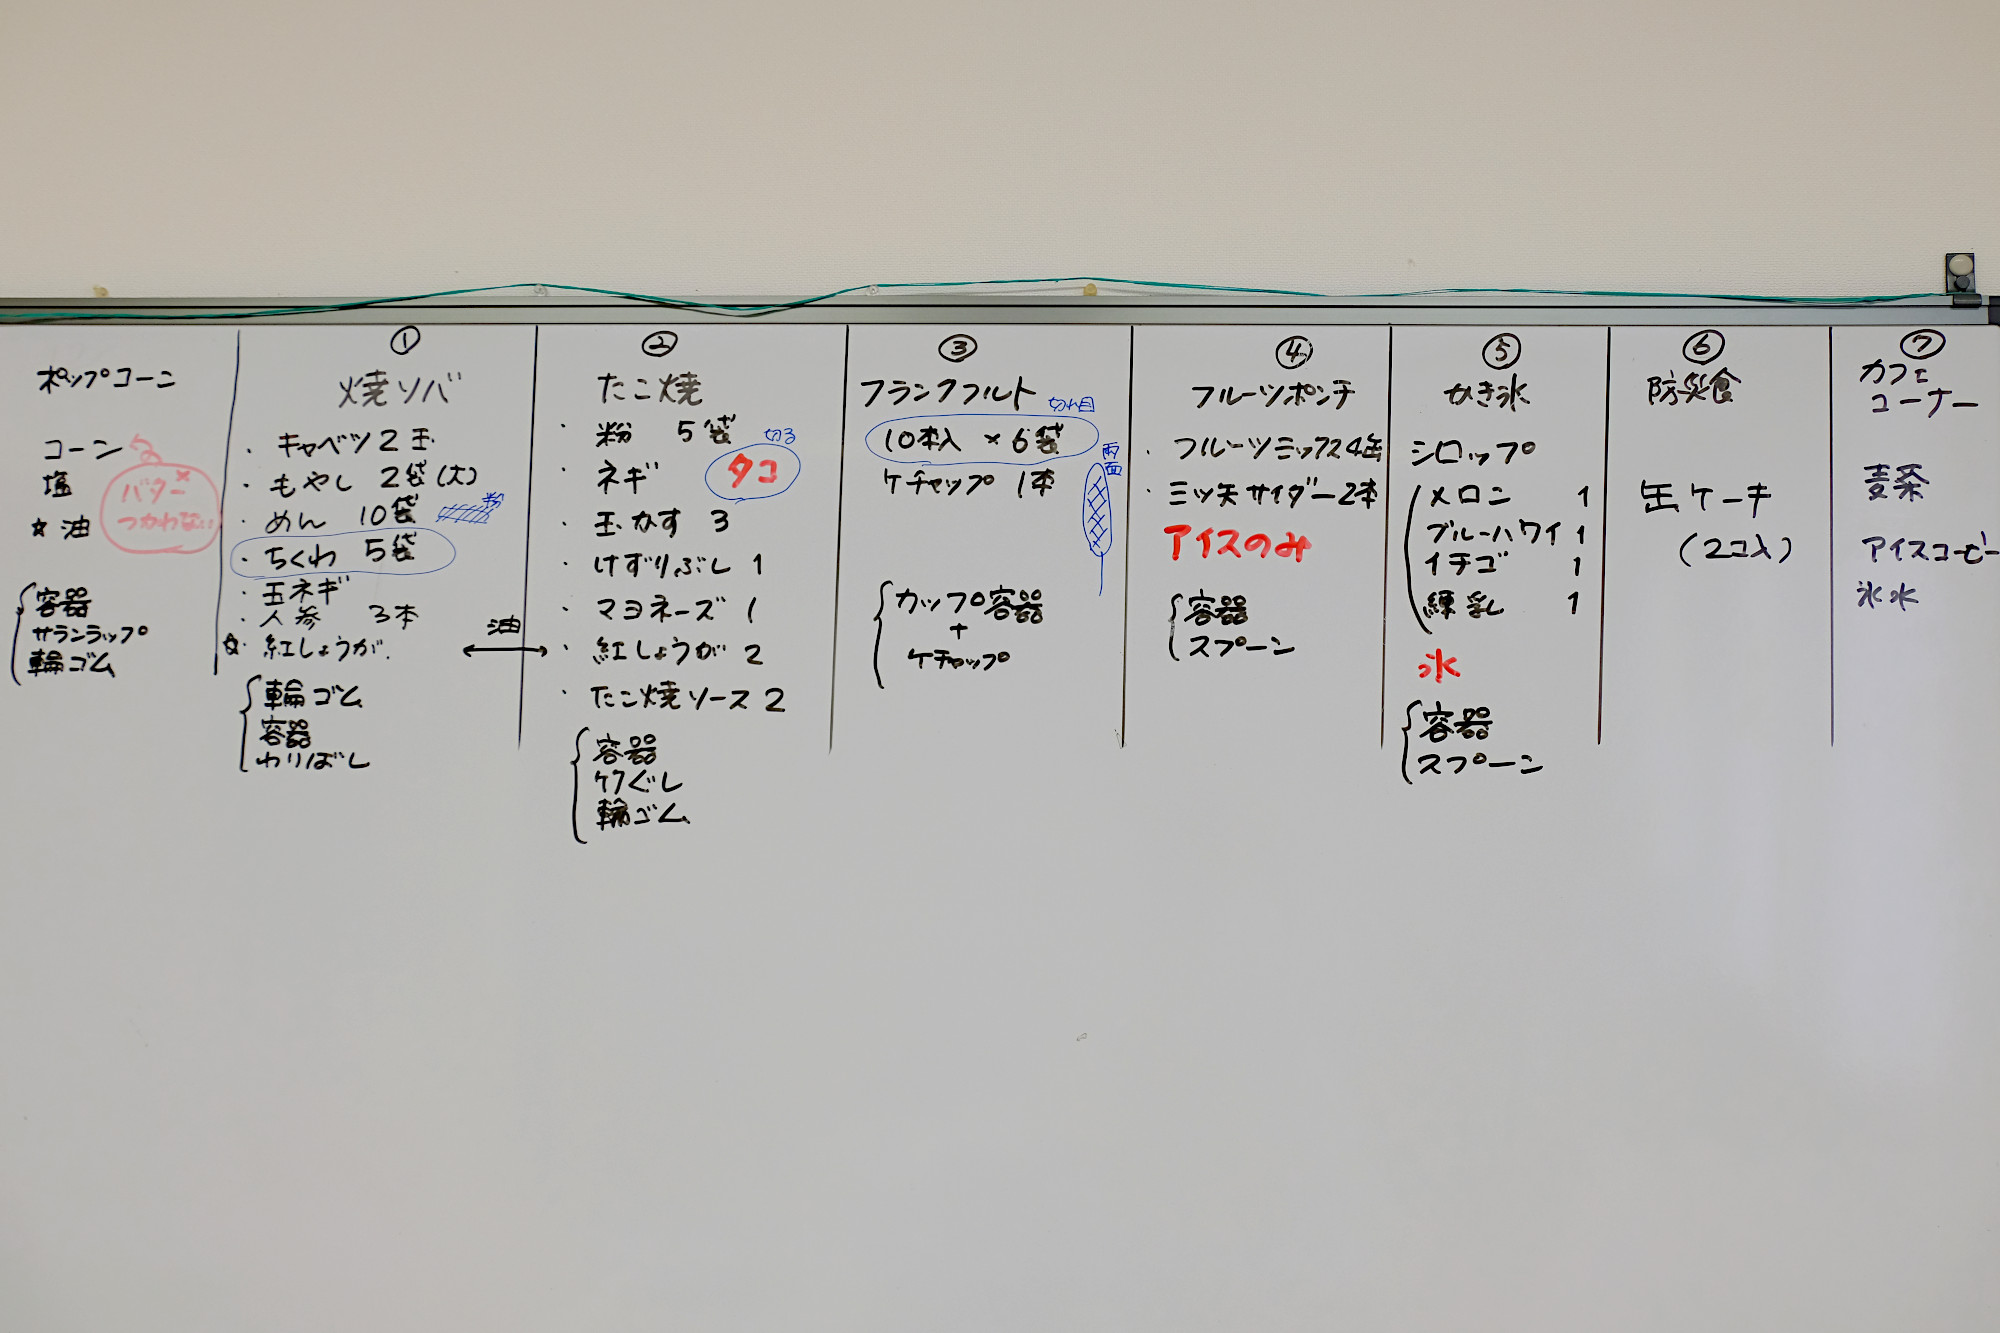 ポップコーン
コーン
塩
☆油
バター ×
つかわない
容器
サランラップ
輪ゴム
①
焼ソバ
・キャベツ2玉
・もやし 2袋(大)
・めん 10袋
粉
・ちくわ 5袋
・玉ネギ
・人参 3本
☆紅しょうが
輪ゴム
容器
わりばし
油
②
たこ焼
・粉 5袋
切る
・ネギ
タコ
・玉かす 3
・けずりぶし 1
・マヨネーズ 1
・紅しょうが 2
・たこ焼ソース 2
容器
竹ぐし
輪ゴム
③
フランクフルト
切れ目
10本入 × 6袋
両面
ケチャップ 1本
カップ容器
+
ケチャップ
④
フルーツポンチ
・フルーツミックス4缶
・三ツ矢サイダー2本
アイスのみ
容器
スプーン
⑤
かき氷
シロップ
メロン 1
ブルーハワイ 1
イチゴ 1
練乳 1
氷
容器
スプーン
⑥
防災食
缶ケーキ
(2コ入)
⑦
カフェ
コーナー
麦茶
アイスコーヒー
氷水